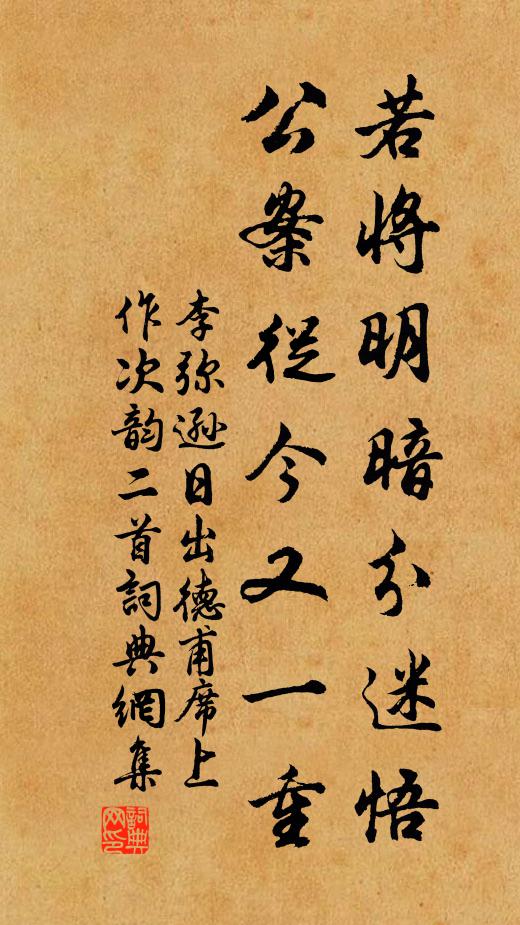 若將明暗分迷悟
公案從今又一重
李弥遜日出德甫席上
作次韵二首詞典網集
詞典
网印